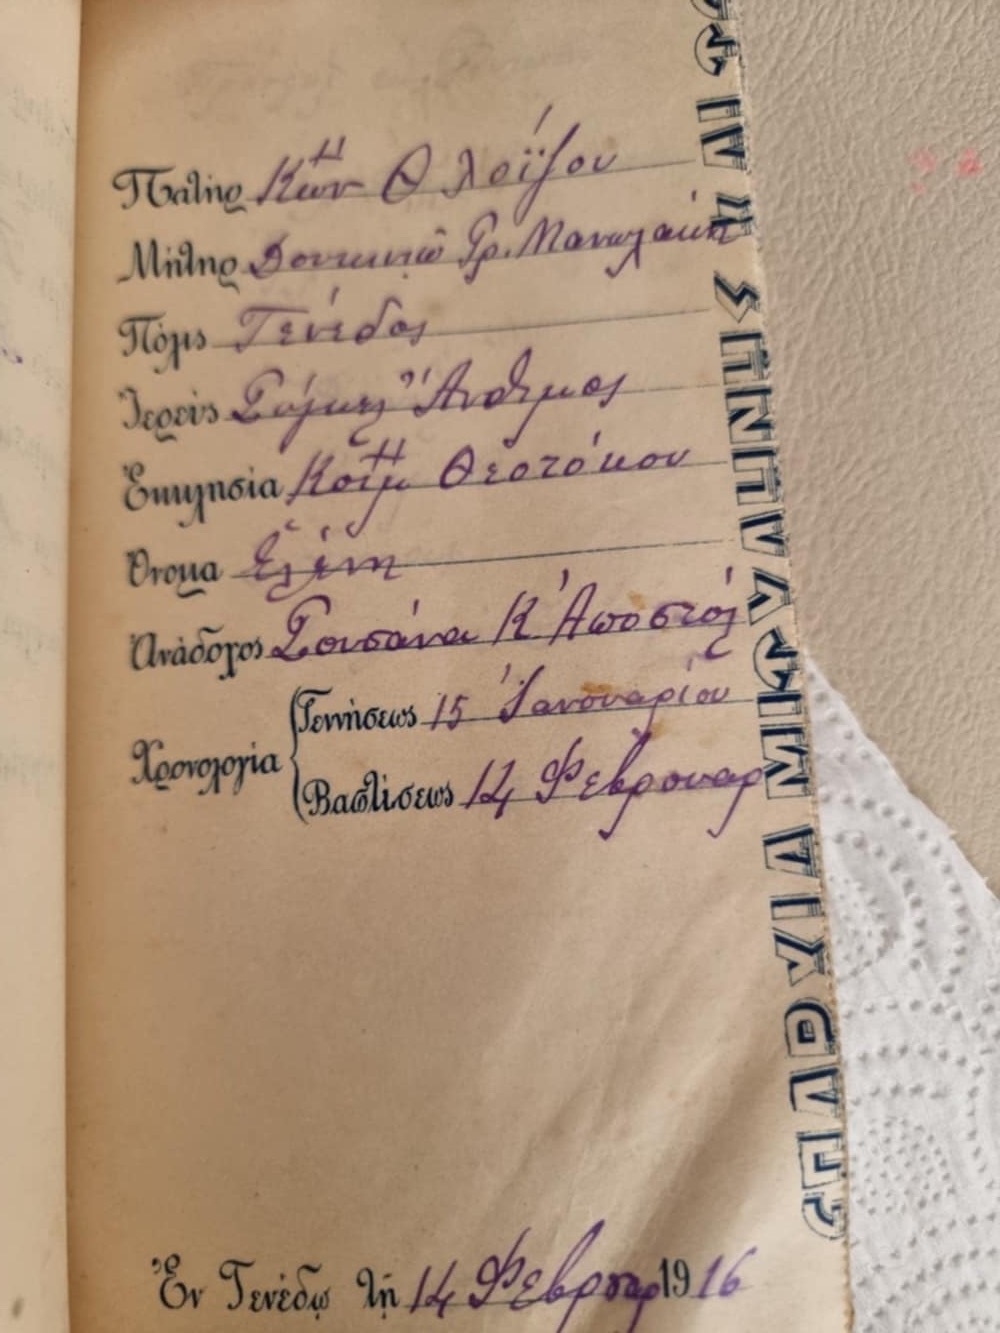 Πατήρ Κων Θ Λοΐζου
Μήτηρ Δουκινιῶ Γρ. Μανωλάκη
Πόλις Τένεδος
Ἱερεὺς Σύγκελ Ἄνθιμος
Ἐκκλησία Κοιμ Θεοτόκου
Ὄνομα Ἑλένη
Ἀνάδοχος Σουσάνα Κ Ἀποστόλ
Χρονολογία
Γεννήσεως 15 Ἰανουαρίου
Βαπτίσεως 14 Φεβρουαρ
Ἐν Τενέδῳ τῇ 14 Φεβρουαρ 1916
ΕΠΑΡΧΙΑ ΜΙΤΥΛΗΝΗΣ